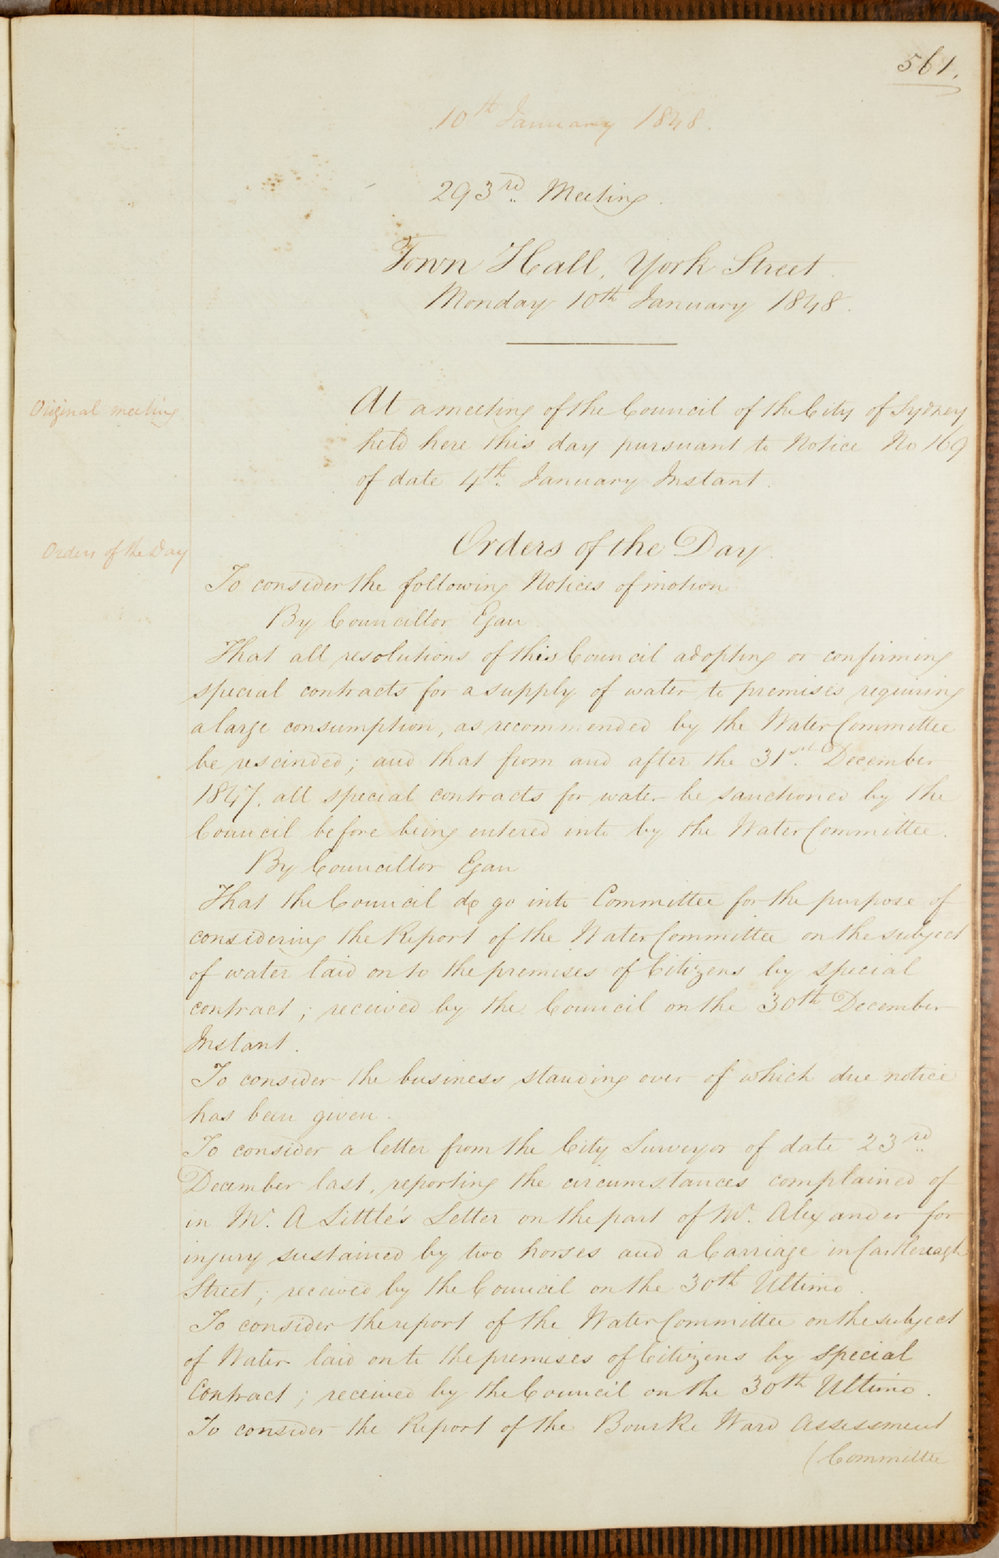 561.
10th January 1848.
293rd Meeting.
Town Hall, York Street.
Monday 10th January 1848.
Original meeting
At a meeting of the Council of the City of Sydney
held here this day pursuant to Notice No 169
of date 4th January Instant.
Orders of the Day
Orders of the Day.
To consider the following Notices of motion
By Councillor Egan
That all resolutions of this Council adopting or confirming
special contracts for a supply of water to premises requiring
a large consumption, as recommended by the Water Committee
be rescinded; and that from and after the 31st December
1847. all special contracts for water be sanctioned by the
Council before being entered into by the Water Committee.
By Councillor Egan
That the Council do go into Committee for the purpose of
considering the Report of the Water Committee on the subject
of water laid on to the premises of Citizens by special
contract; received by the Council on the 30th December
Instant.
To consider the business standing over of which due notice
has been given.
To consider a letter from the City Surveyor of date 23rd
December last, reporting the circumstances complained of
in Mr. A Little's Letter on the part of Mr. Alexander for
injury sustained by two horses and a Carriage in Castlereagh
Street; received by the Council on the 30th Ultimo.
To consider the report of the Water Committee on the subject
of Water laid on to the premises of Citizens by special
Contract; received by the Council on the 30th Ultimo.
To consider the Report of the Bourke Ward Assessment
(Committee